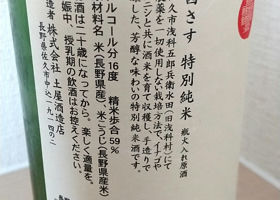 さす 特別純米 瓶火入れ原酒
久市浅科五郎兵衛水田(旧浅科村)にて
薬を一切使用しない栽培方法で、イナゴや
ニシと共に酒米を育て収穫し、手造りで
した。芳醇な味わいの特別純米酒です。
ルコール分16度 精米歩合59%
材料名 米(長野県産)、米こうじ(長野県産米)
酒は二十歳になってから。楽しく適量を。
娠中、授乳期の飲酒はお控えください。
造者 株式会社 土屋酒造店
長野県佐久市中込一九一四ー二